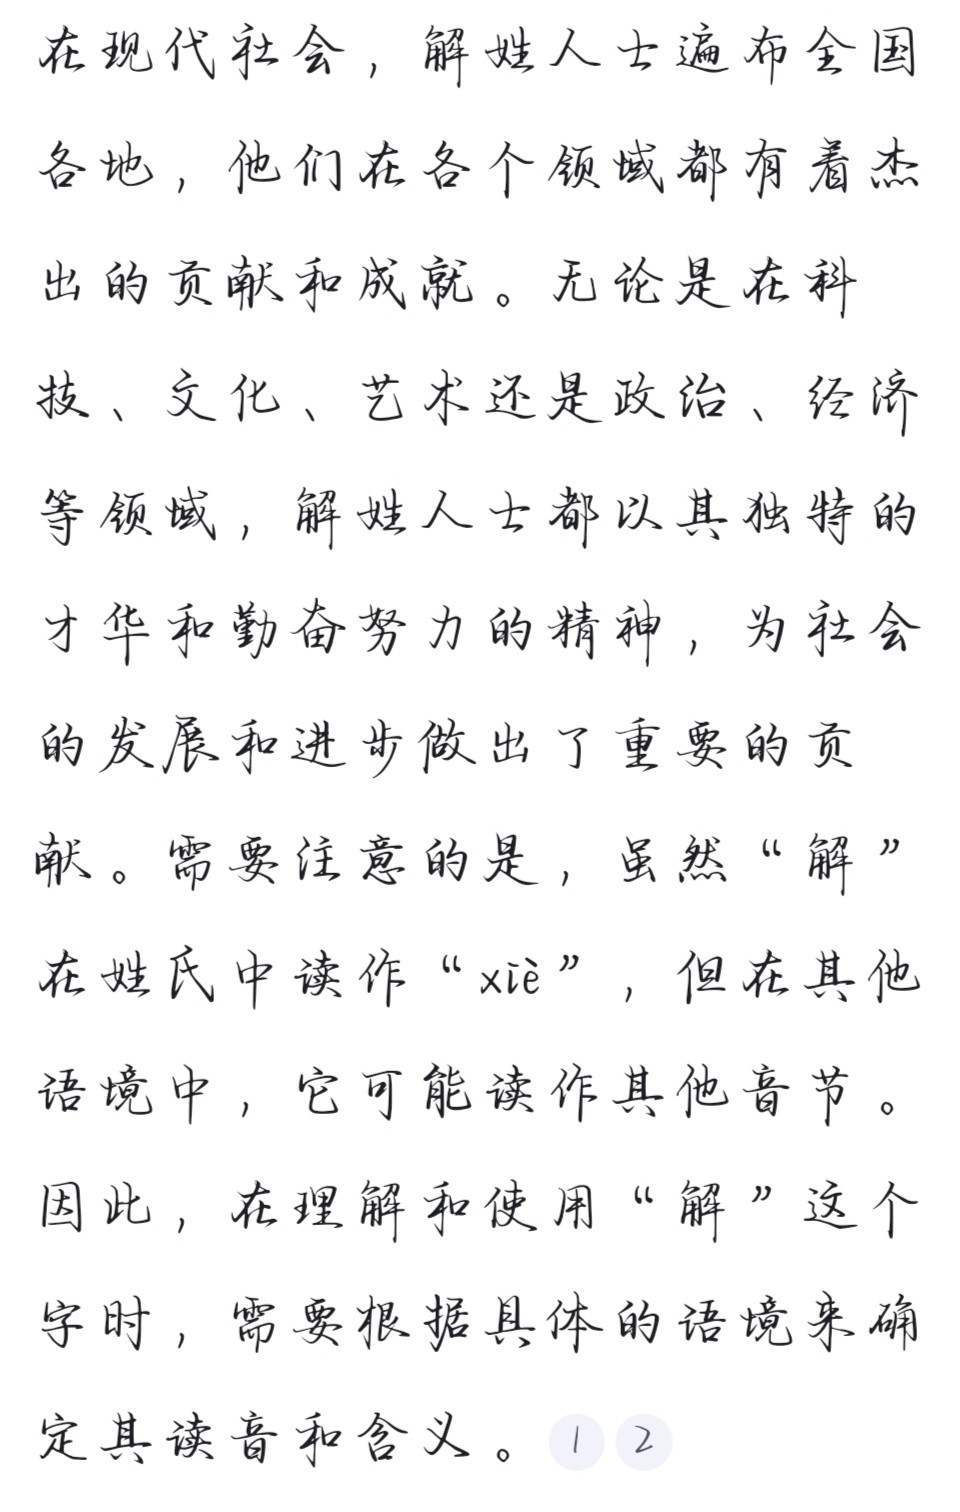 在现代社会，解姓人士遍布全国
各地，他们在各个领域都有着杰
出的贡献和成就。无论是在科
技、文化、艺术还是政治、经济
等领域，解姓人士都以其独特的
才华和勤奋努力的精神，为社会
的发展和进步做出了重要的贡
献。需要注意的是，虽然“解”
在姓氏中读作“xiè”，但在其他
语境中，它可能读作其他音节。
因此，在理解和使用“解”这个
字时，需要根据具体的语境来确
定其读音和含义。 1 2